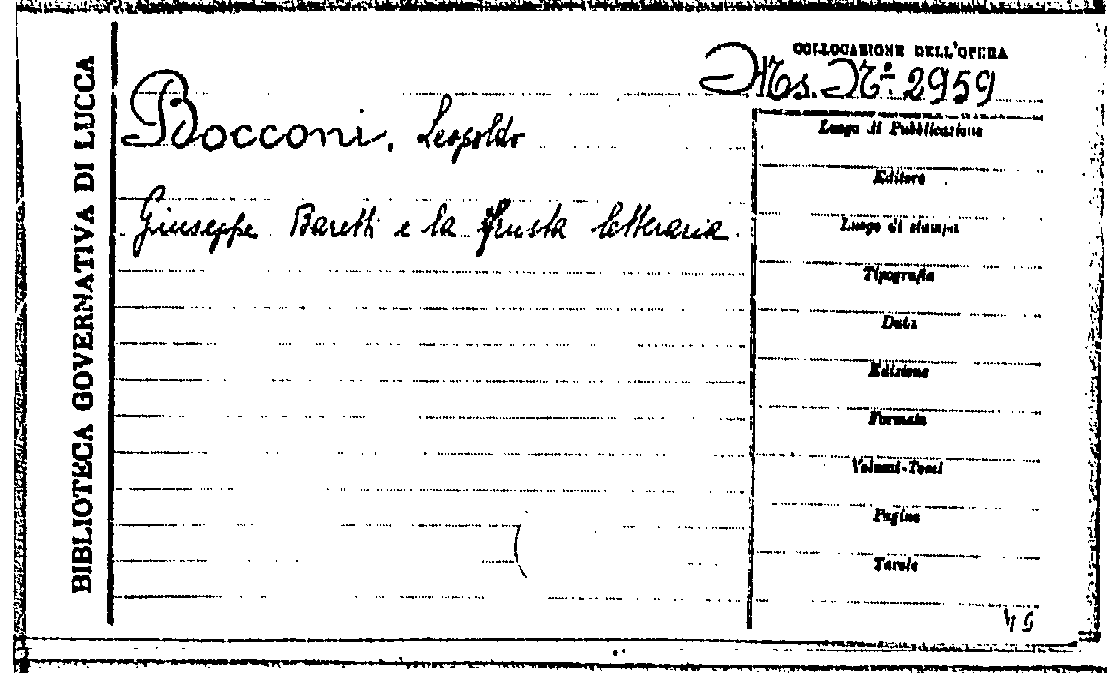 BIBLIOTECA GOVERNATIVA DI LUCCA
COLLOCAZIONE DELL'OPERA
Ms. N.º 2959
Bocconi, Leopoldo
Giuseppe Baretti e la frusta letteraria.
Luogo di Pubblicazione
Editore
Luogo di stampa
Tipografia
Data
Edizione
Formato
Volumi-Tomi
Pagine
Tavole